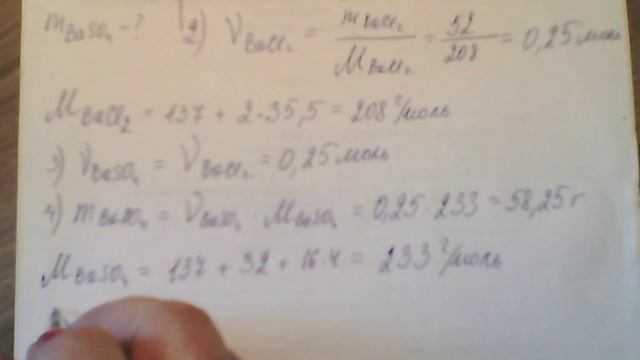 m BaSO₄ - ? 2) ν BaCl₂ = m BaCl₂ / M BaCl₂ = 52 / 208 = 0,25 моль
M BaCl₂ = 137 + 2·35,5 = 208 г/моль
3) ν BaSO₄ = ν BaCl₂ = 0,25 моль
4) m BaSO₄ = ν BaSO₄ · M BaSO₄ = 0,25·233 = 58,25 г
M BaSO₄ = 137 + 32 + 16·4 = 233 г/моль